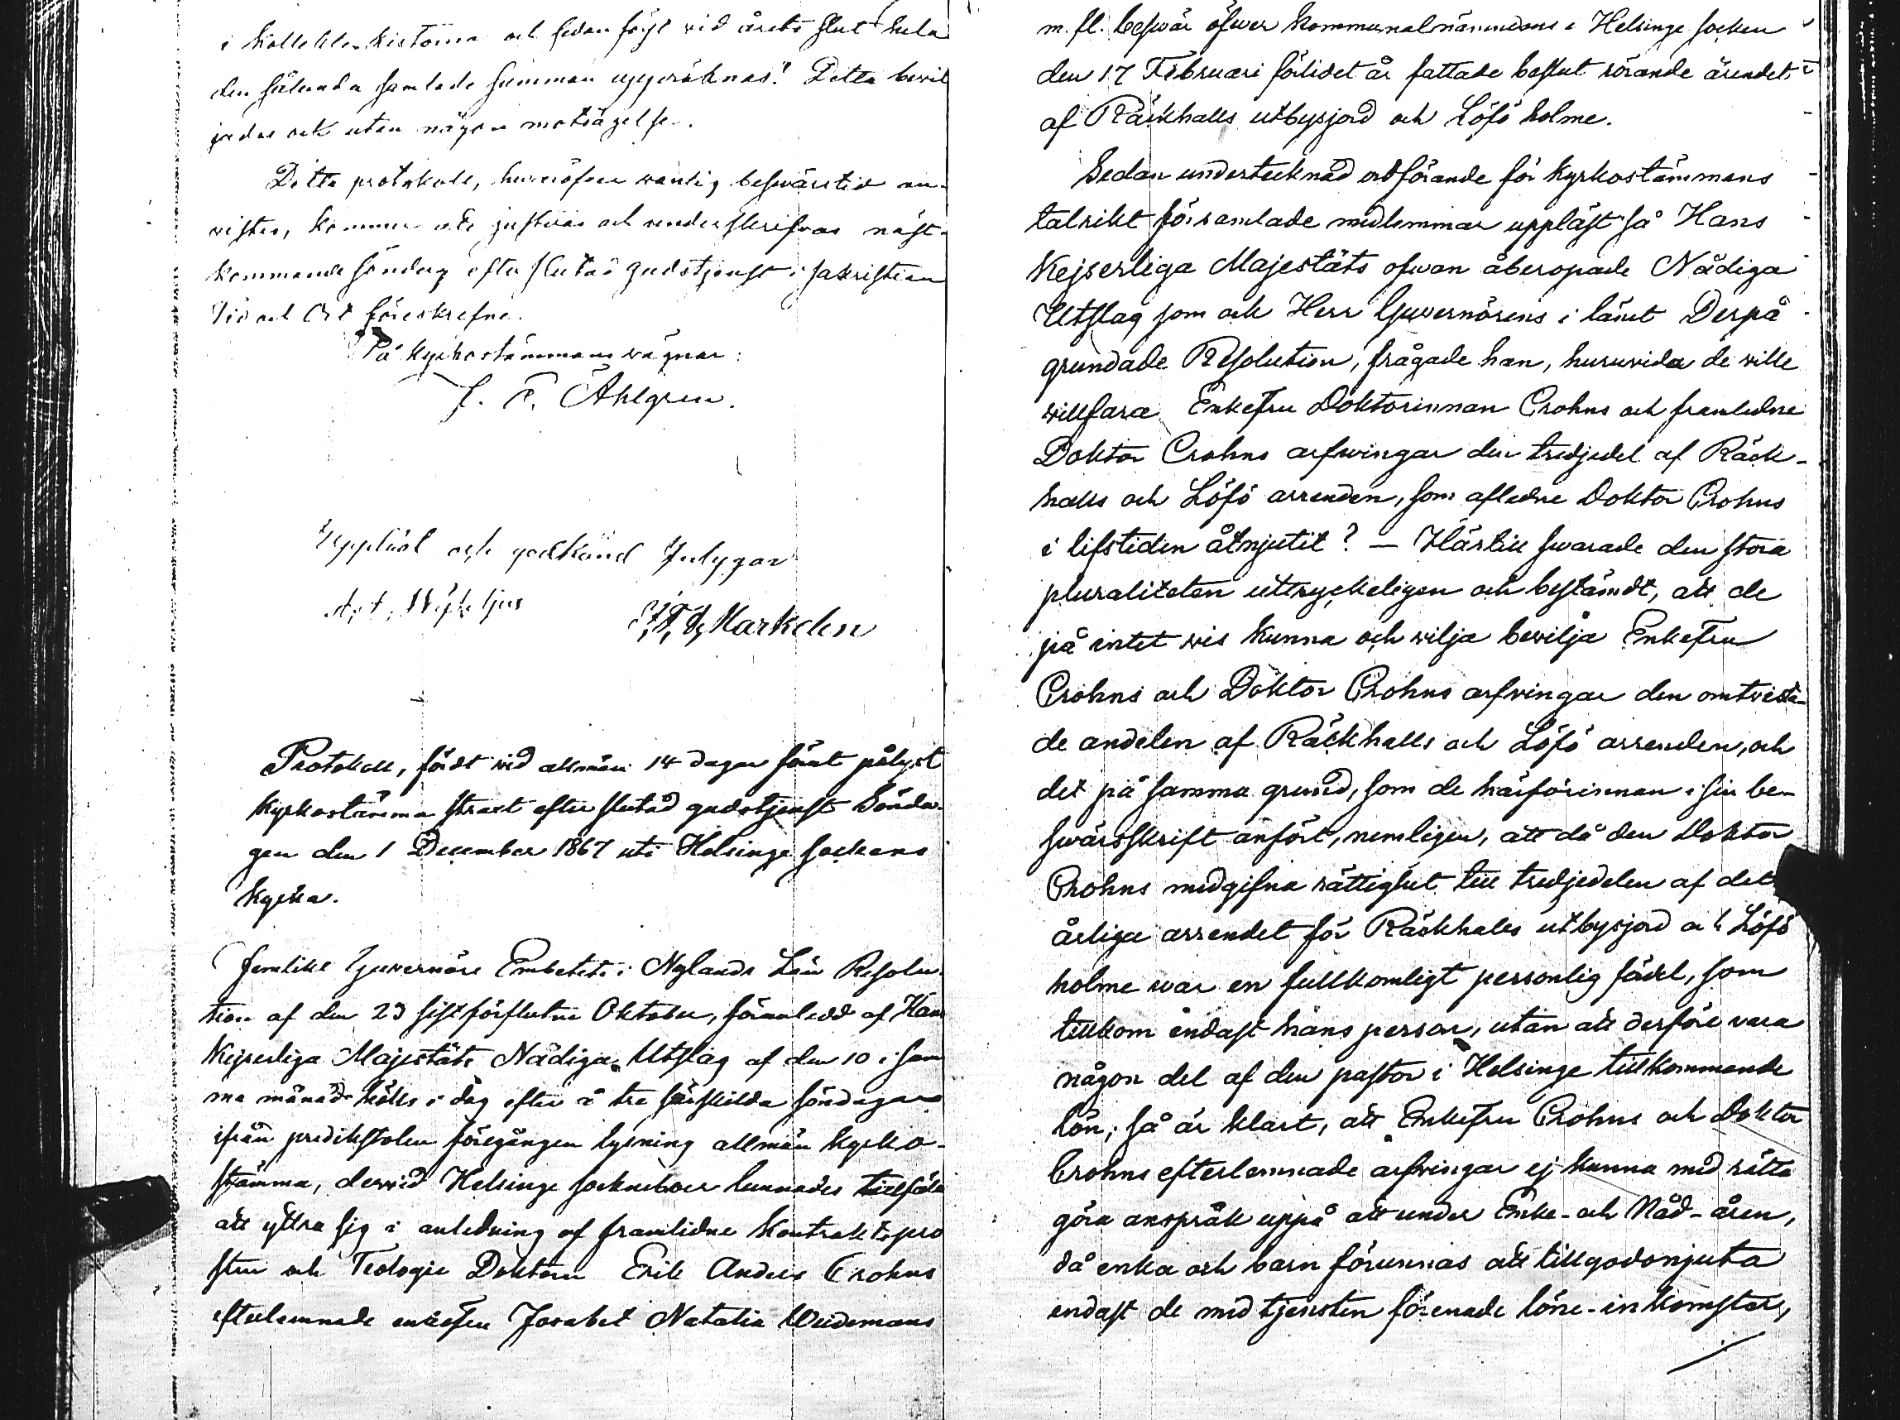 i kollekter kistorna och sedan först vid årets slut hela
den sålunda samlade summan uppräknas." Detta bevil
jades och utan någon motsägelse.
Detta protokoll, hvaröfver vanlig besvärstid an-
vistes, kommer att justeras och underskrifvas näst-
kommande söndag efter slutad gudstjenst i sakristian
Tid och Ort föreskrefne.
På kyrkostämmans vägnar:
Åhlgren.
Uppläst och godkänd
Markelen
Protokoll, fördt vid allmän 14 dagar förut pålyst
kyrkostämma straxt efter slutad gudstjenst Sönda-
gen den 1 December 1867 uti Helsinge sockens
kyrka.
Jemlikt Guvernörs Embetets i Nylands Län Resolu-
tion af den 23 sistförflutne Oktober, föranledd af Hans
Kejserliga Majestäts Nådiga Utslag af den 10 i sam
ma månad hölls i dag efter å tre särskilda söndagar
ifrån predikstolen föregången lysning allmän kyrko-
stämma, dervid Helsinge socknéboer lemnades tillfälle
att yttra sig i anledning af framlidne Kontraktspro
sten och Teologie Doktorn Erik Anders Crohns
efterlemnade enkefru Natalia Weidemans
m. fl. besvär öfwer Kommunalnämndens i Helsinge socken
den 17 Februari förlidet år fattade beslut rörande ärendet
af Räckhalls utbysjord och Löfö holme.
Sedan undertecknad ordförande för kyrkostämmans
talrikt församlade medlemmar uppläst så Hans
Kejserliga Majestäts ofvan åberopade Nådiga
Utslag som ock Herr Guvernörens i länet Derpå
grundade Resolution, frågade han, huruvida de ville
villfara Enkefru Doktorinnan Crohns och framlidne
Doktor Crohns arfvingar den tredjedel af Räck-
halls och Löfö arrenden, som aflidne Doktor Crohns
i lifstiden åtnjutit? — Härtill swarade den stora
pluraliteten uttryckeligen och bestämdt, att de
på intet vis kunna och vilja bevilja Enkefru
Crohns och Doktor Crohns arfvingar den omtvista-
de andelen af Räckhalls och Löfö arrenden, och
det på samma grund, som de härförinnan i sin be-
swärsskrift anfört, nemligen, att då den Doktor
Crohns medgifna rättighet till tredjedelen af det
årliga arrendet för Räckhalls utbysjord och Löfö
holme war en fullkomligt personlig fördel, som
tillkom endast hans person, utan att derföre vara
någon del af den pastor i Helsinge tillkommande
lön; så är klart, att Enkefru Crohns och Doktor
Crohns efterlemnade arfvingar ej kunna med rätta
göra anspråk uppå att under Enke- och Nåd-åren,
då enka och barn förunnas att tillgodonjuta
endast de med tjensten förenade löne-inkomster,